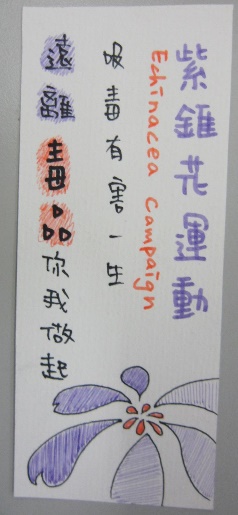 紫錐花運動
Echinacea Campaign
吸毒有害一生
遠離毒品你我做起